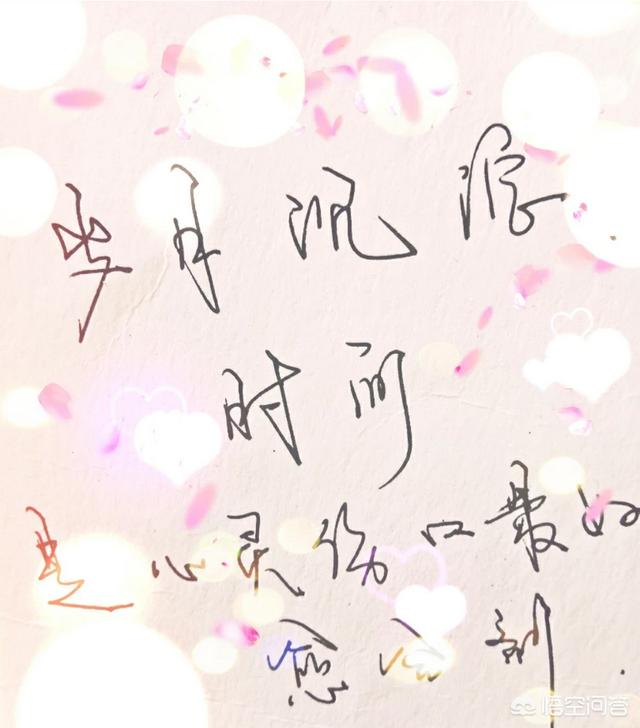 岁月沉淀
时间
是心灵伤口最好
愈合剂.
悟空问答